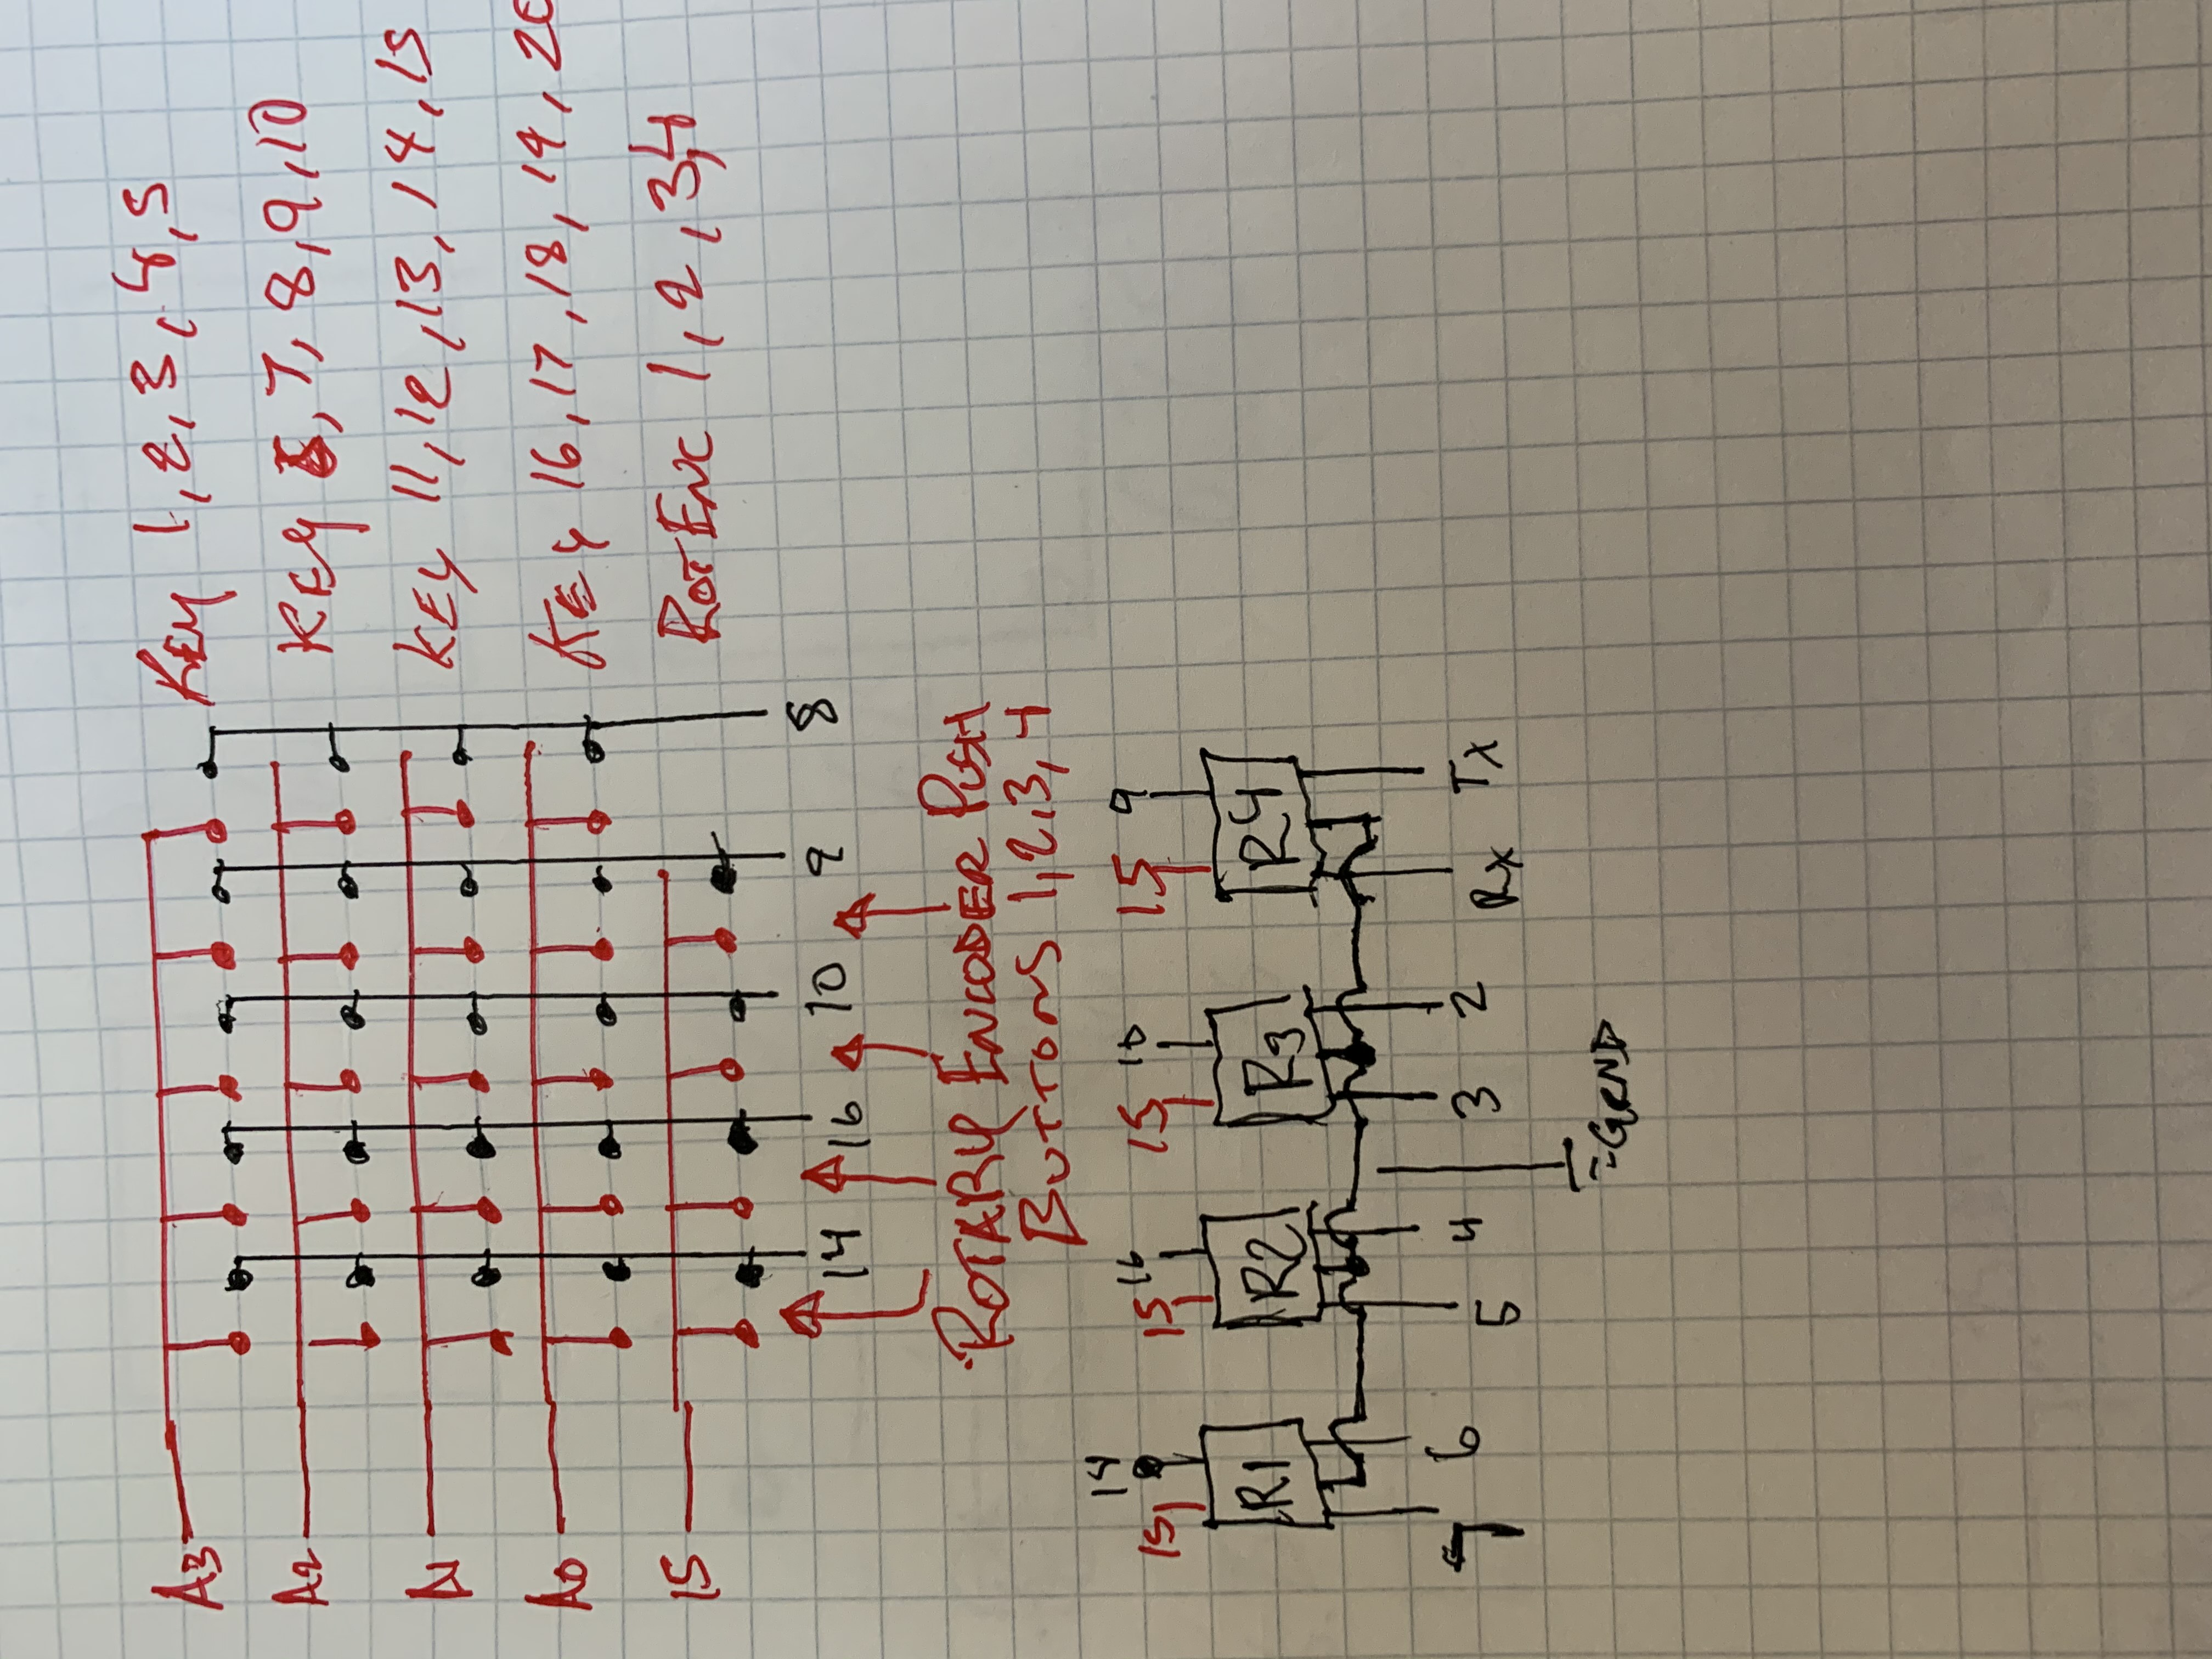 A3 KEY 1, 2, 3, 4, 5
A2 KEY 6, 7, 8, 9, 10
A1 KEY 11, 12, 13, 14, 15
A0 KEY 16, 17, 18, 19, 20
15 ROT ENC 1, 2, 3, 4
14 16 10 9 8
ROTARY ENCODER PUSH
BUTTONS 1, 2, 3, 4
15 14 15 16 15 10 15 9
R1 R2 R3 R4
7 6 5 4 3 2 Rx Tx
GRND